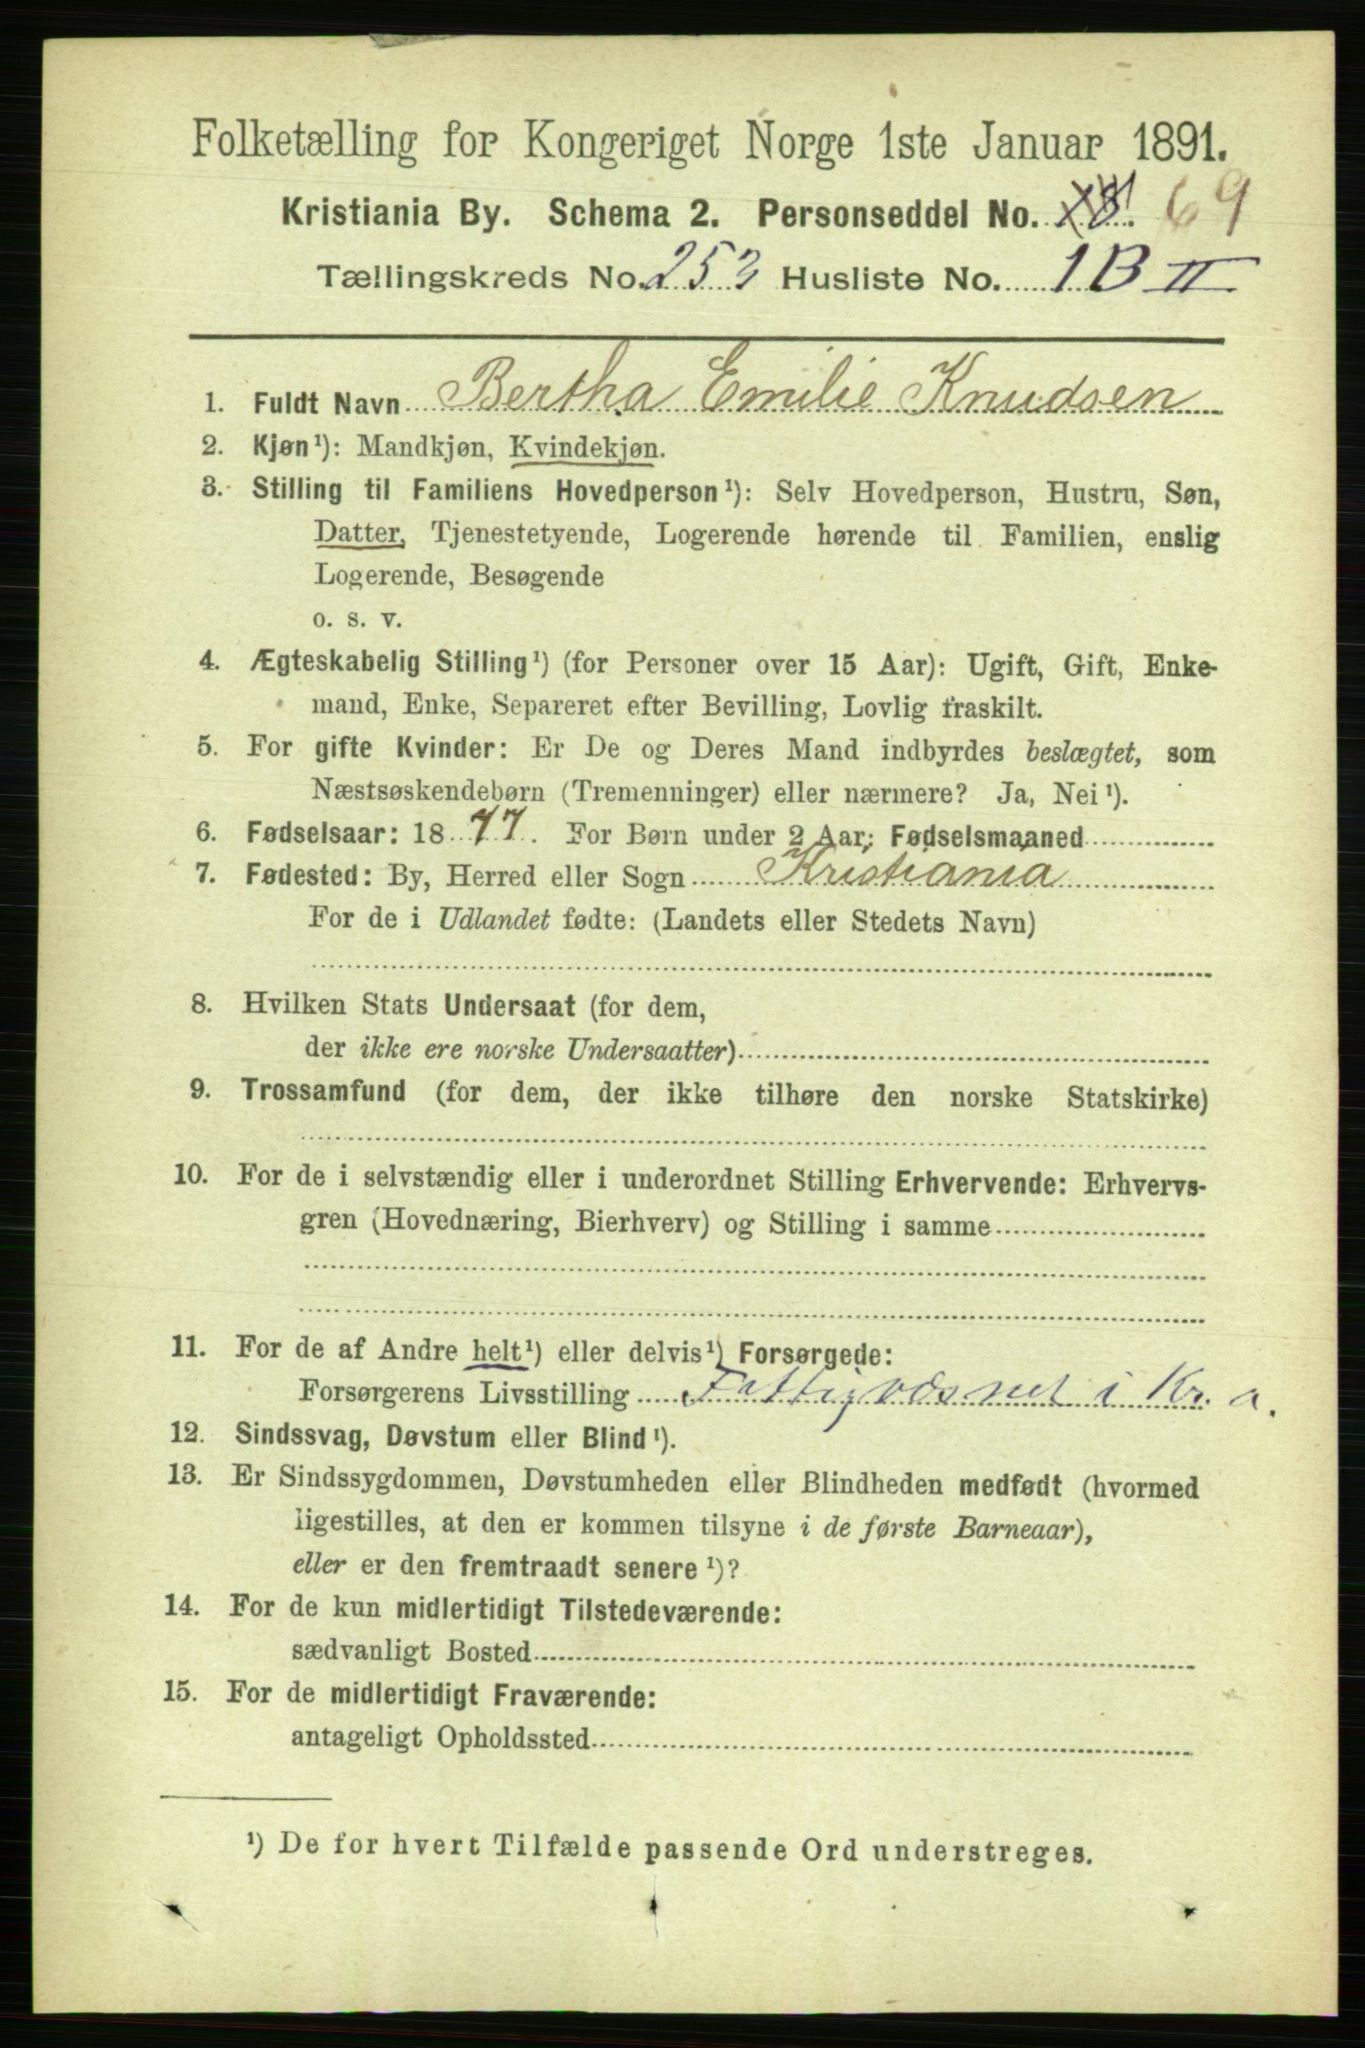 Folketælling for Kongeriget Norge 1ste Januar 1891.
Kristiania By. Schema 2. Personseddel No. 18. 69
Tællingskreds No. 253 Husliste No. 1 B II
1. Fuldt Navn Bertha Emilie Knudsen
2. Kjøn¹): Mandkjøn, Kvindekjøn.
3. Stilling til Familiens Hovedperson¹): Selv Hovedperson, Hustru, Søn,
Datter, Tjenestetyende, Logerende hørende til Familien, enslig
Logerende, Besøgende
o. s. v.
4. Ægteskabelig Stilling¹) (for Personer over 15 Aar): Ugift, Gift, Enke-
mand, Enke, Separeret efter Bevilling, Lovlig fraskilt.
5. For gifte Kvinder: Er De og Deres Mand indbyrdes beslægtet, som
Næstsøskendebørn (Tremenninger) eller nærmere? Ja, Nei¹).
6. Fødselsaar: 1877. For Børn under 2 Aar: Fødselsmaaned
7. Fødested: By, Herred eller Sogn Kristiania
For de i Udlandet fødte: (Landets eller Stedets Navn)
8. Hvilken Stats Undersaat (for dem,
der ikke ere norske Undersaatter)
9. Trossamfund (for dem, der ikke tilhøre den norske Statskirke)
10. For de i selvstændig eller i underordnet Stilling Erhvervende: Erhvervs-
gren (Hovednæring, Bierhverv) og Stilling i samme
11. For de af Andre helt¹) eller delvis¹) Forsørgede:
Forsørgerens Livsstilling Fattigvæsnet i Kr. a.
12. Sindssvag, Døvstum eller Blind¹).
13. Er Sindssygdommen, Døvstumheden eller Blindheden medfødt (hvormed
ligestilles, at den er kommen tilsyne i de første Barneaar),
eller er den fremtraadt senere¹)?
14. For de kun midlertidigt Tilstedeværende:
sædvanligt Bosted
15. For de midlertidigt Fraværende:
antageligt Opholdssted
¹) De for hvert Tilfælde passende Ord understreges.